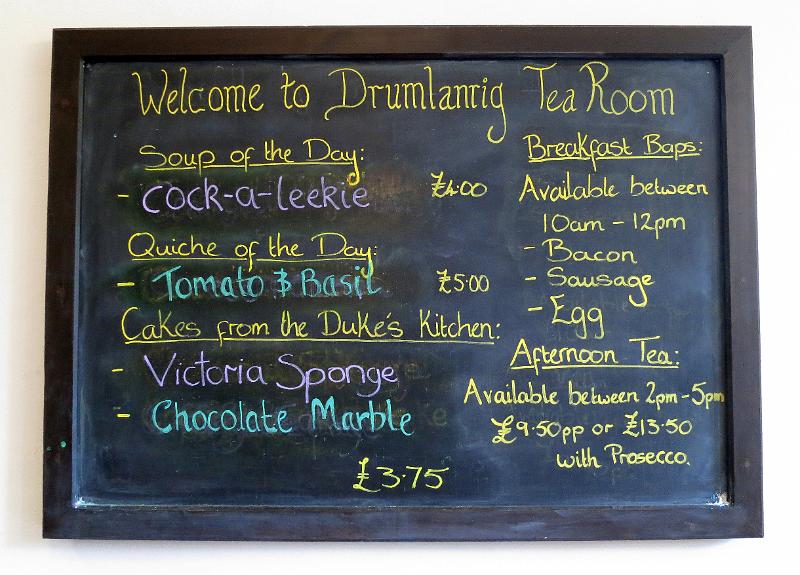 Welcome to Drumlanrig Tea Room
Soup of the Day:
- Cock-a-leekie £4.00
Quiche of the Day:
- Tomato & Basil £5.00
Cakes from the Duke's Kitchen:
- Victoria Sponge
- Chocolate Marble
£3.75
Breakfast Baps:
Available between
10am - 12pm
- Bacon
- Sausage
- Egg
Afternoon Tea:
Available between 2pm - 5pm
£9.50pp or £13.50
with Prosecco.